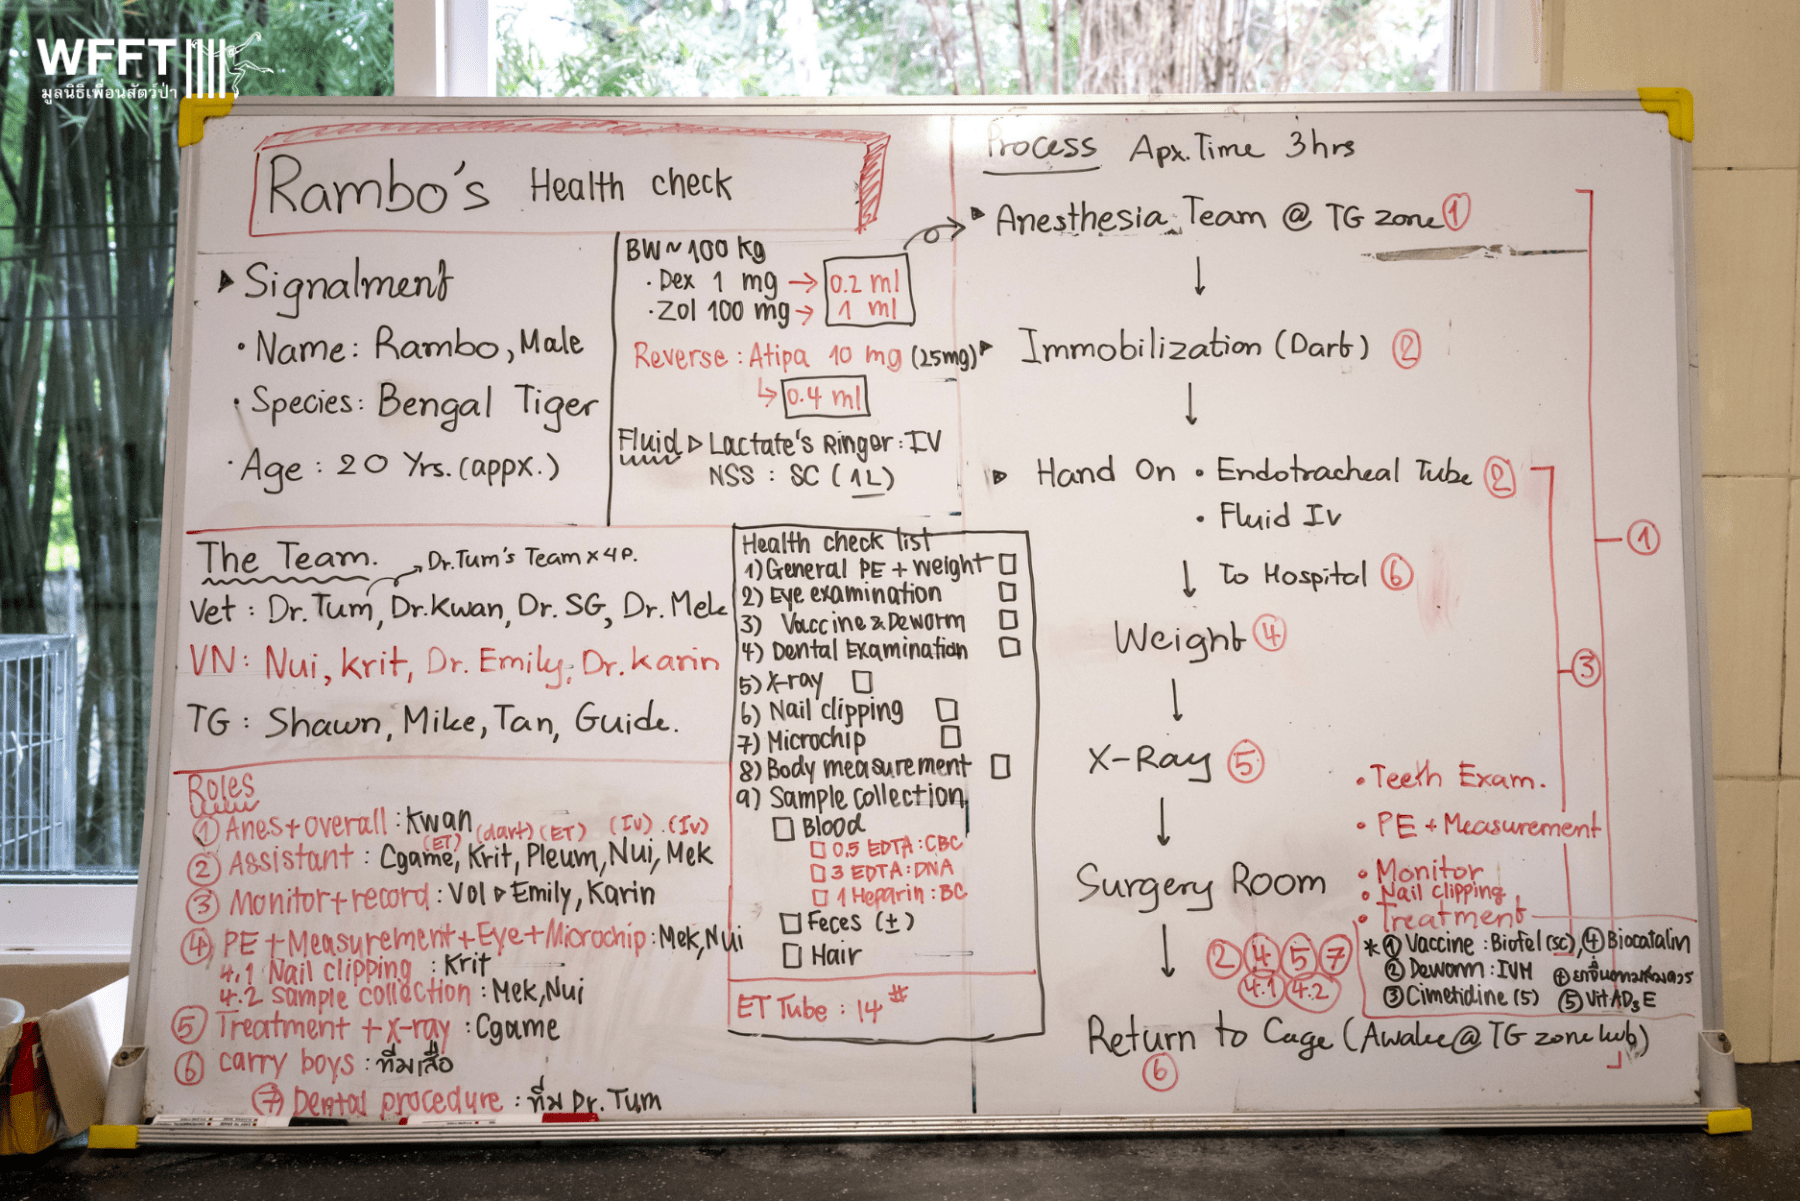 WFFT
มูลนิธิเพื่อนสัตว์ป่า
Rambo's Health check
▸ Signalment
• Name: Rambo, Male
• Species: Bengal Tiger
• Age : 20 Yrs. (appx.)
BW ~ 100 kg
• Dex 1 mg → 0.2 ml
• Zol 100 mg → 1 ml
Reverse : Atipa 10 mg (25mg)
↳ 0.4 ml
Fluid ▹ Lactate's Ringer : IV
NSS : SC (1L)
The Team.
→ Dr.Tum's Team x 4 P.
Vet : Dr.Tum, Dr.Kwan, Dr. SG, Dr. Mek
VN : Nui, Krit, Dr. Emily, Dr. Karin
TG : Shawn, Mike, Tan, Guide.
Roles
① Anes + overall : Kwan
(ET) (dart) (ET) (IV) (IV)
② Assistant : Cgame, Krit, Pleum, Nui, Mek
③ Monitor + record : Vol ▹ Emily, Karin
④ PE + Measurement + Eye + Microchip : Mek, Nui
4.1 Nail clipping : Krit
4.2 Sample collection : Mek, Nui
⑤ Treatment + X-ray : Cgame
⑥ carry boys : ทีมเสือ
⑦ Dental procedure : ทีม Dr. Tum
Health check list
1) General PE + weight □
2) Eye examination □
3) Vaccine & Deworm □
4) Dental Examination □
5) X-ray □
6) Nail clipping □
7) Microchip □
8) Body measurement □
9) Sample collection
□ Blood
□ 0.5 EDTA : CBC
□ 3 EDTA : DNA
□ 1 Heparin : BC
□ Feces (±)
□ Hair
ET Tube : 14 #
Process Apx. Time 3 hrs
▸ Anesthesia Team @ TG zone ①
↓
▸ Immobilization (Dart) ②
↓
▹ Hand On • Endotracheal Tube ②
• Fluid IV
①
↓ To Hospital ⑥
Weight ④
③
↓
X-Ray ⑤
↓
Surgery Room
• Teeth Exam.
• PE + Measurement
• Monitor
• Nail clipping
• Treatment
↓ ② ④ ⑤ ⑦
4.1 4.2
* ① Vaccine : Biofel (sc), ④ Biocatalin
② Deworm : IVM
③ Cimetidine (5) ⑤ Vit AD₃E
Return to Cage (Awake @ TG zone
⑥